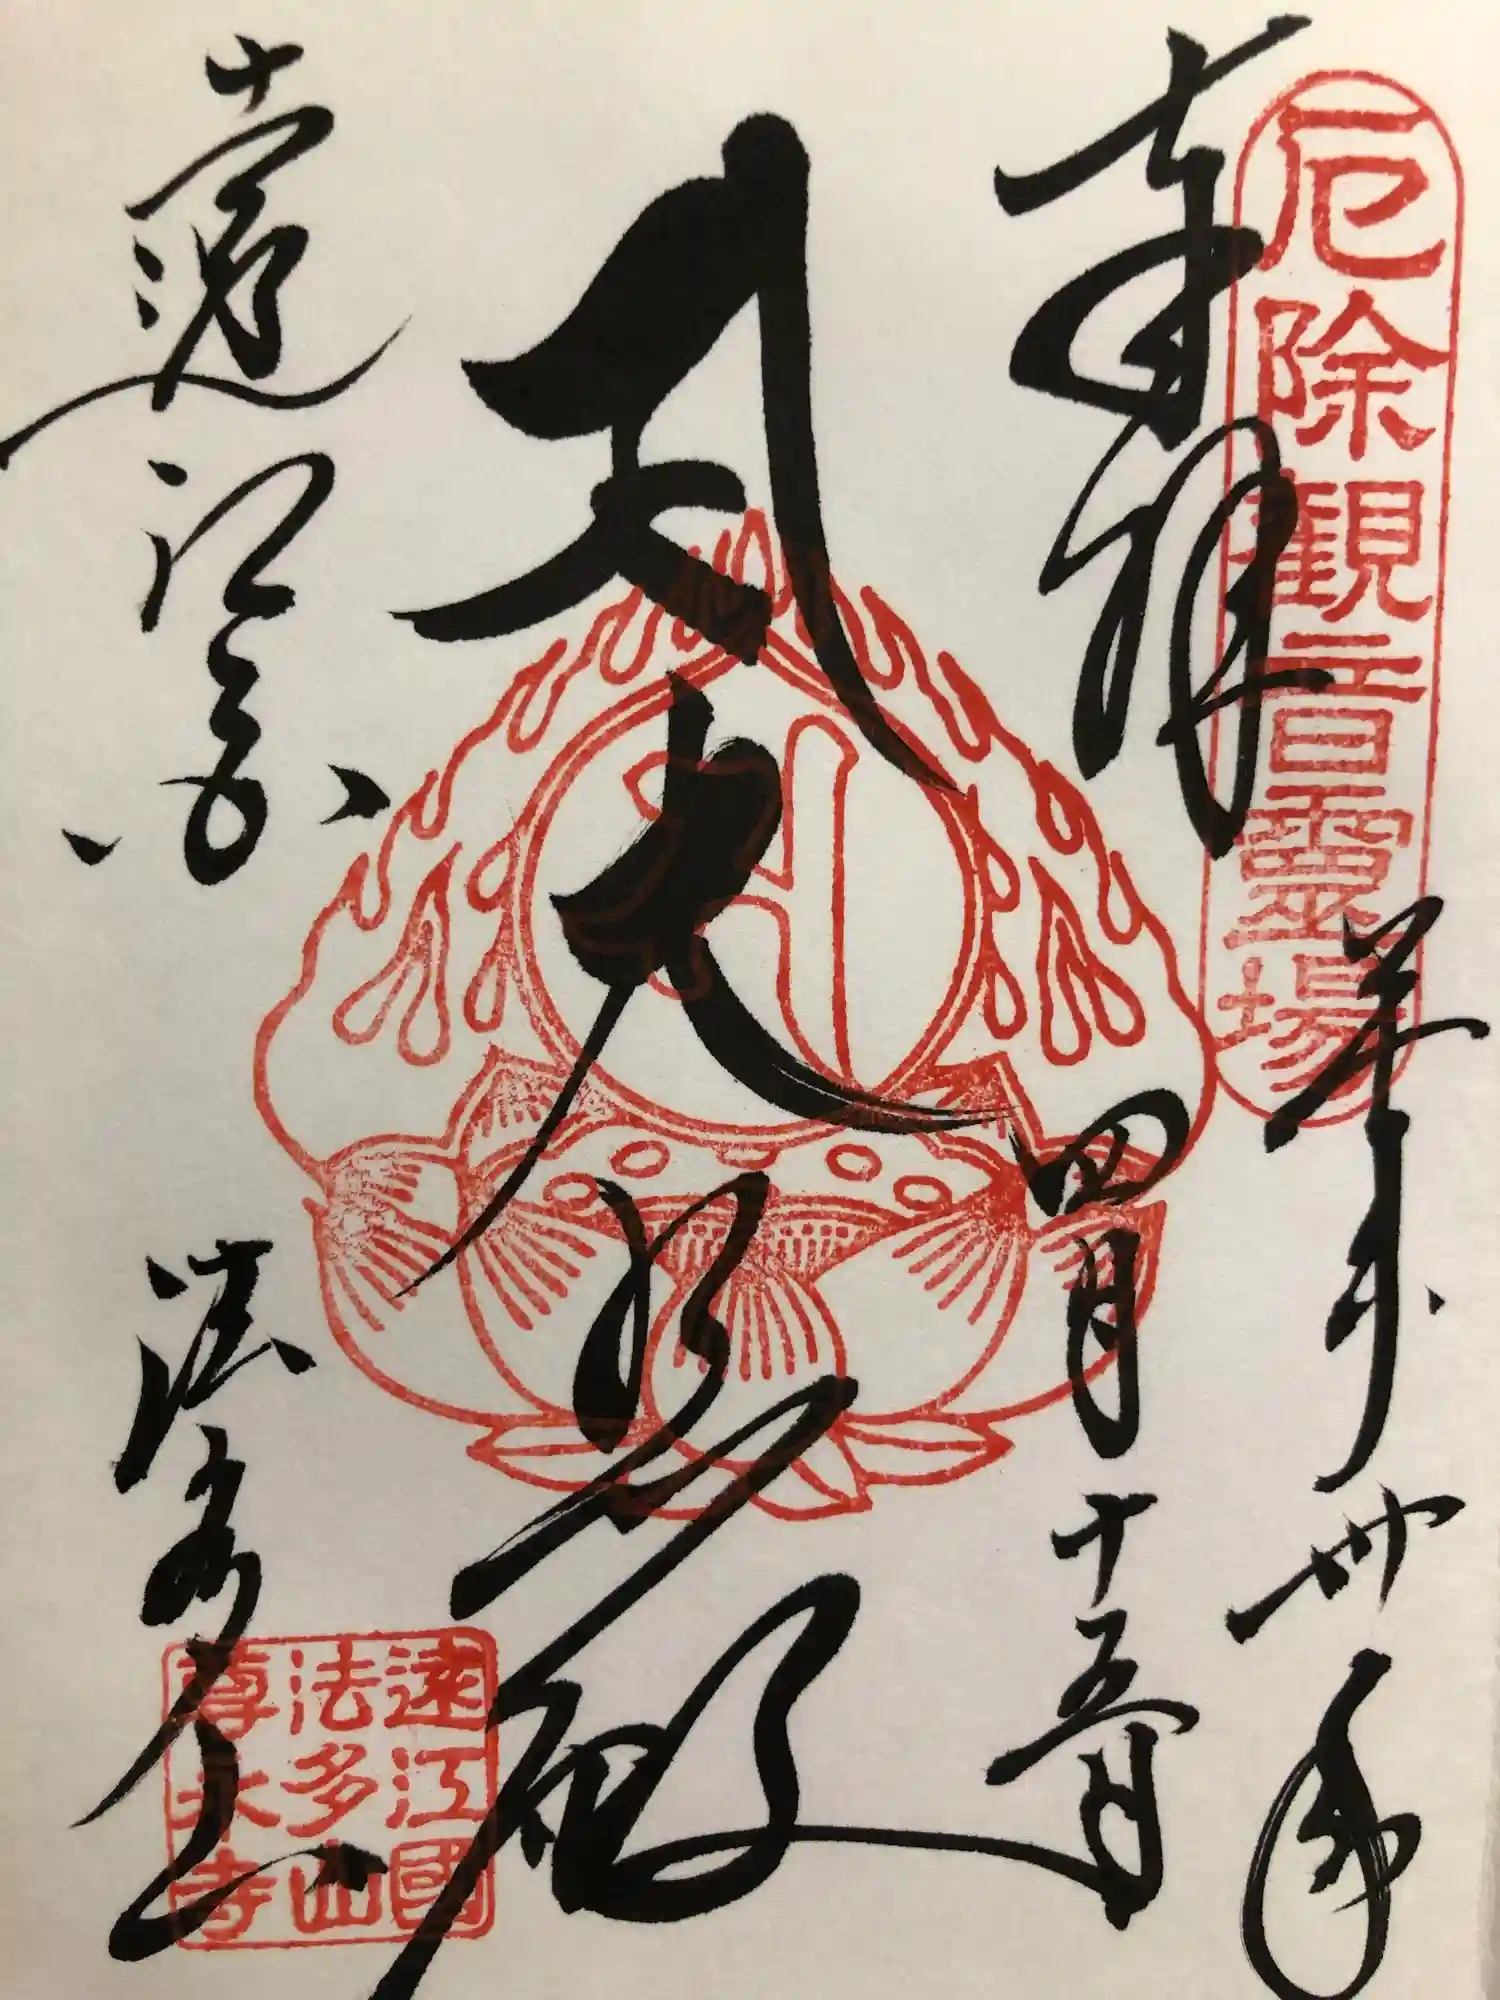 厄除観音靈場
奉拝
平成卅年
四月十五日
大悲殿
遠江国
法多山
遠江國
法多山
尊永寺